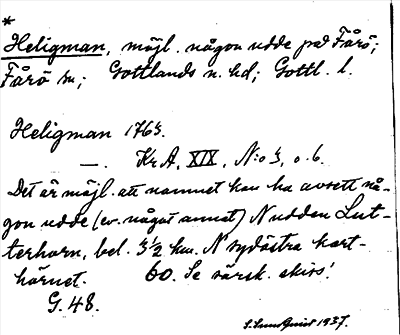 *
Heligman, möjl. någon udde på Fårö;
Fårö sn; Gottlands n. hd; Gottl. l.
Heligman 1763.
—. Kr A, XIX, N:o 3, o. 6.
Det är möjl. att namnet kan ha avsett nå-
gon udde (ev. något annat) N udden Lut-
terhorn, bel. 3 1/2 km. N sydöstra kart-
hörnet. 60. Se särsk. skiss!
G. 48.
S. Lundquist 1937.